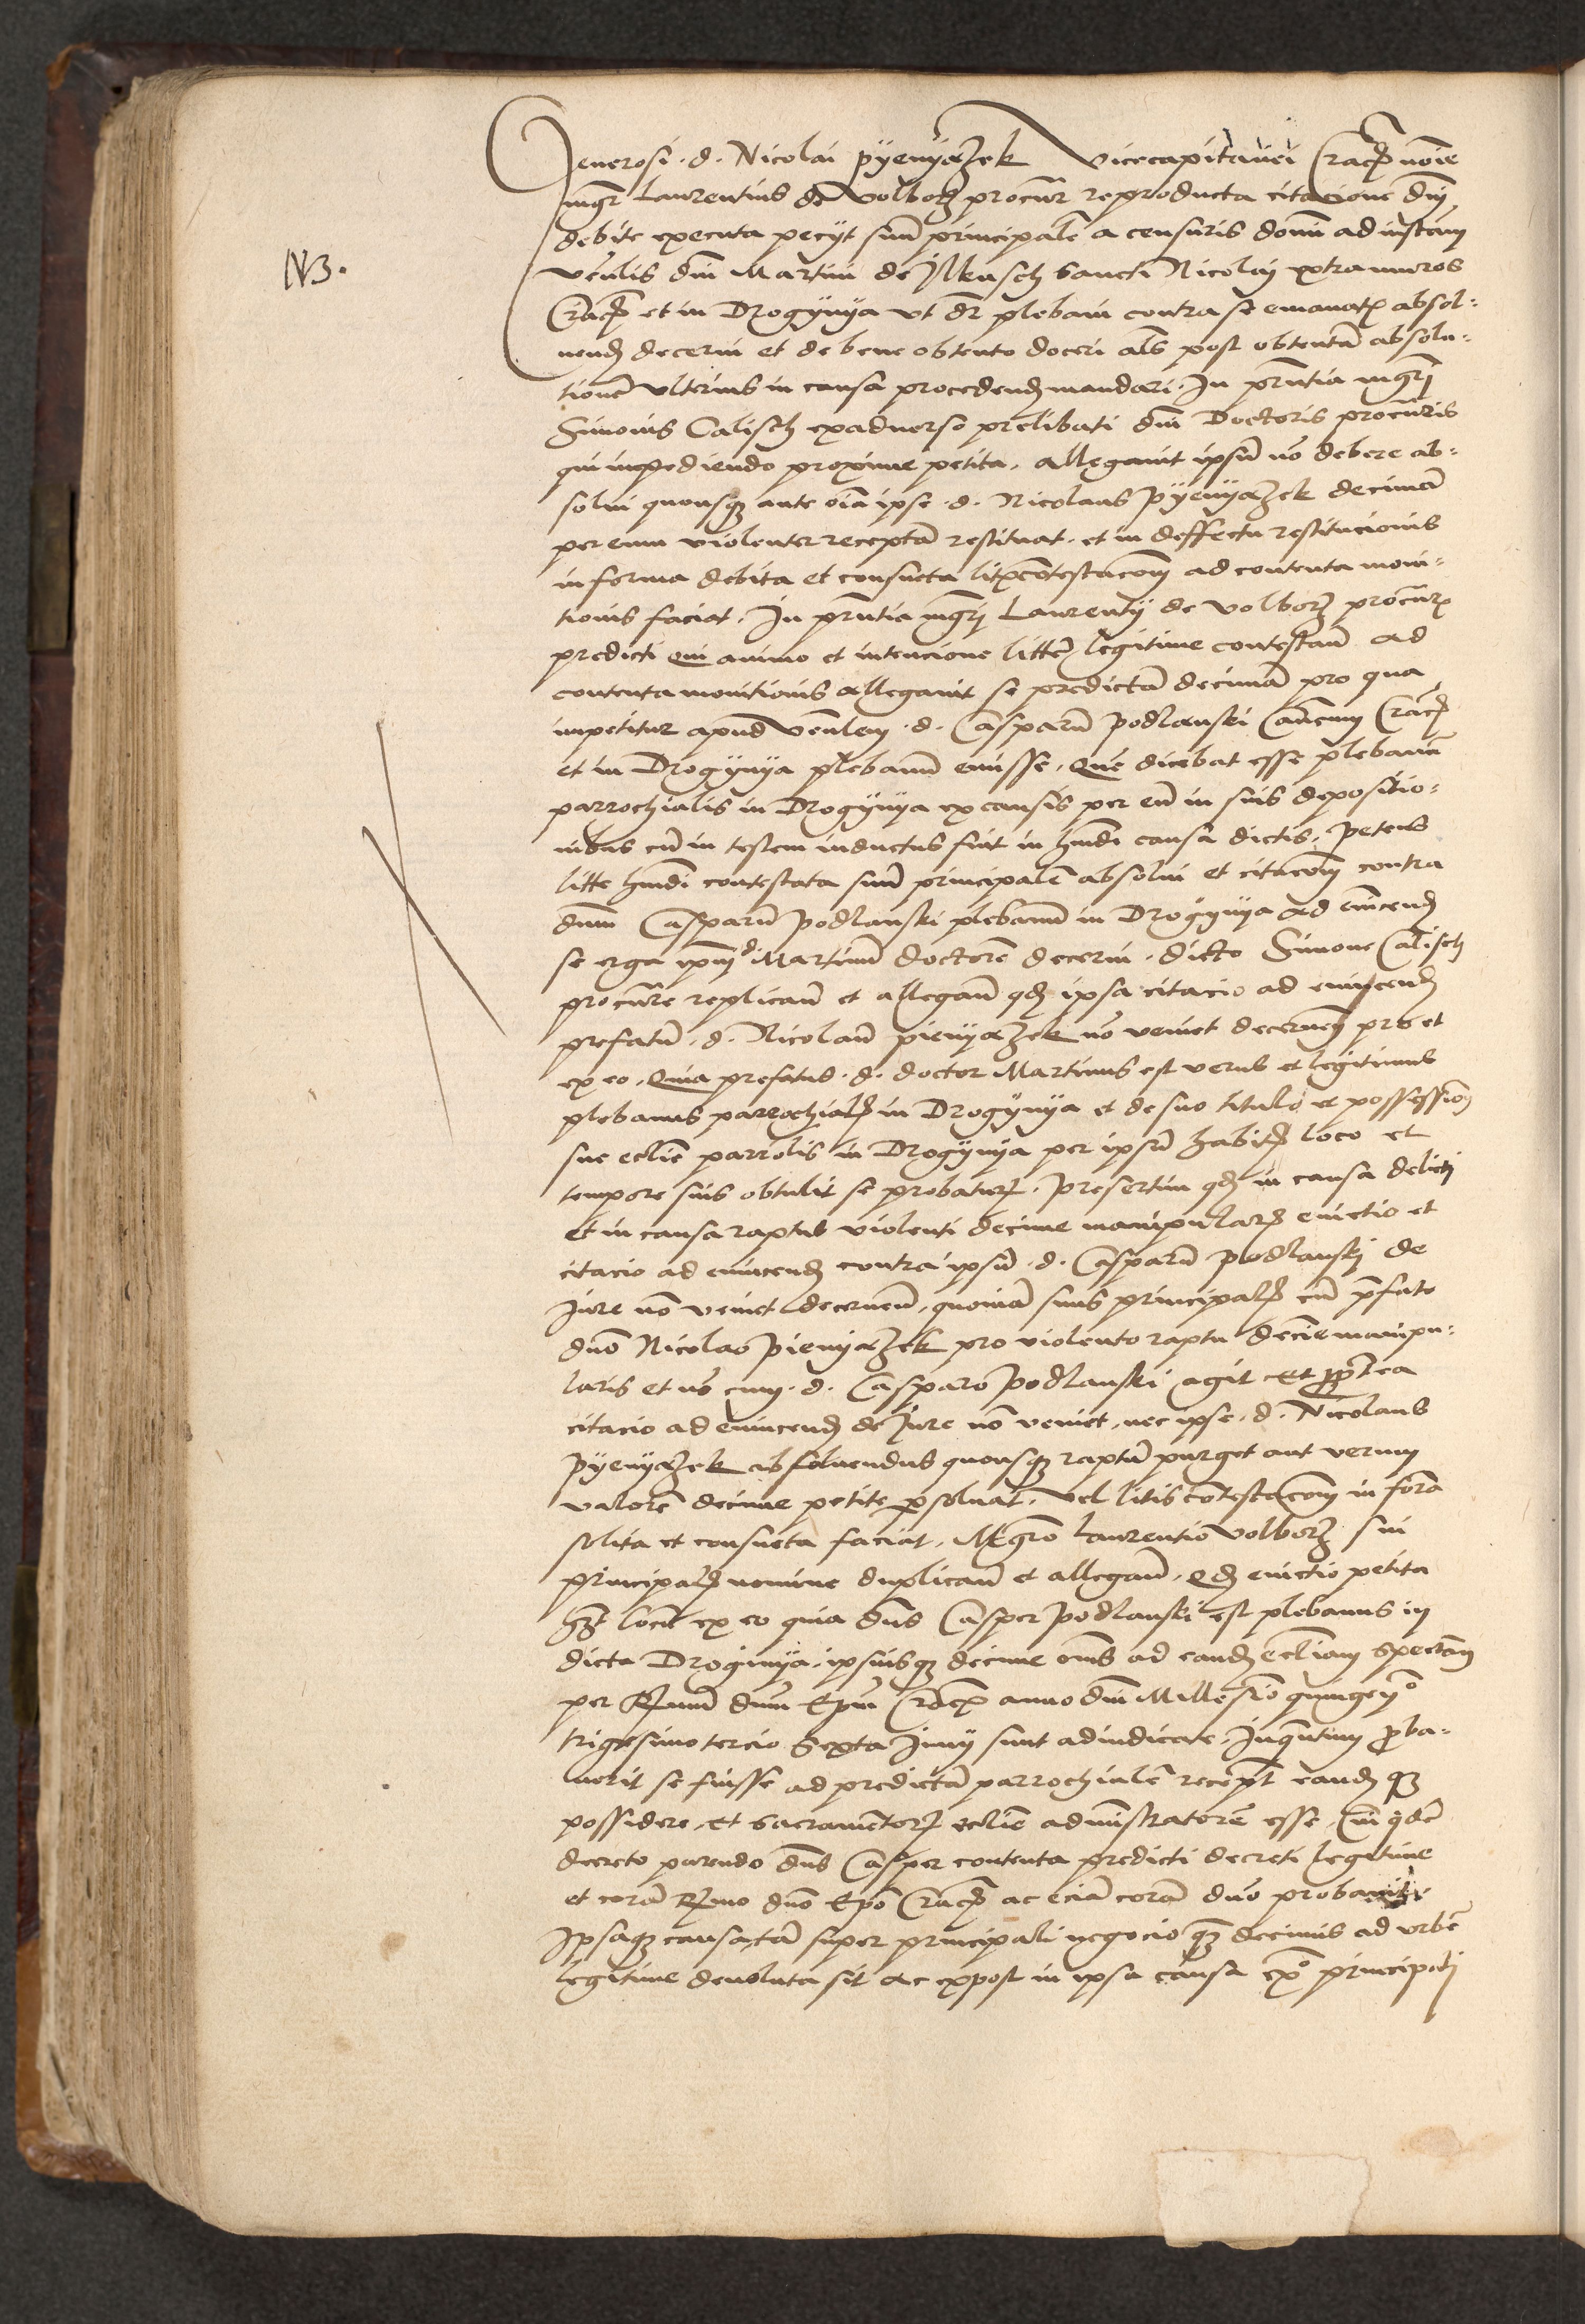 Generosi .d. Nicolai pyenyązek vicecapitanei Cracovien noie
mgr Laurentius de Wolborz procur reproducta citacione dni
debite executa pecyt suum principalē a censuris domi ad instam
NB.
venlis dni Martini de Ilkusch sancti Nicolaj extra muros
Cracovien et in Drogynya ut dr plebani contra se emanatis absol-
uendum decerni et de bene obtento doceri als post obtentā absolu-
tionē ulterius in causa procedendum mandari. In pntia mgri
Simonis Calisch exadverso prelibati dni Doctoris procuris
qui impediendo proxime petita, allegauit ipsū nō debere ab-
solui quousque ante oīa ipse .d. Nicolaus pyenyązek decimā
per eum violenter receptā restituat. et in deffectu restitucionis
in forma debita et consueta litiscōtestacōem ad contenta moni-
tionis faciat. In pntia mgri Laurentij de Wolborz procuris
predicti qui animo et intencione litem legitime contestan̄ ad
contenta monitionis allegauit se predictā decimā pro qua
impetitur apud venlem .d. Casparū podlanski Canonicum Cracovien
et in Drogynya plebanum emisse. Quē dicebat esse plebanū
parrochialis in Drogynya ex causis per eū in suis depositio-
nibus cū in testem inductus fuit in hmōi causa dictis. Petens
litte hmōi contestata suū principalē absolui et citacōem contra
dnum Casparū podlanski plebanū in Drogynya ad euincendum
se erga ipm .d. Martinū doctorē decerni. dicto Simone Calisch
procure replican̄ et allegan̄ qd ipsa citacio ad euincendum
prefatū .d. Nicolaū pienyązek nō veniet decernen̄ pro et
ex eo. Quia prefatus .d. doctor Martinus est verus et legitimus
plebanus parrochialis in Drogynya et de suo titulo et possession
sue ecclie parrolis in Drogynya per ipsū habitis loco et
tempore suis obtulit se probaturum. presertim qd in causa delicti
et in causa raptus violenti decime manipularis euictio et
citacio ad euincendum contra ipsū .d. Casparū podlanskj de
iure non veniet decernenda, quoniā suus principalis cū pfato
dno Nicolao pienyązek pro violento raptu decīe manipu-
laris et nō cum .d. Casparo podlanski agit et propterea
citacio ad euincendum de iure nō veniet. nec ipse .d. Nicolaus
pyenyązek absoluendus quousque raptū purget aut verum
valorē decime petite psoluat. vel litiscōtestacōem in forā
solita et consueta faciat. Mgro Laurentio Wolborz sui
principalis nomine duplican̄ et allegan̄. Qd euictio petita
hȝ locū ex eo quia dns Casper podlanski est plebanus in
dicta Droginya. ipsiusque decime oms ad eandem eccliam spectan̄
per Rmum dnum Epum Cracovien anno dni Millesīo quingenmo
trigesimo tercio Sexta Junij sunt adiudicate, inquantum proba-
uerit se fuisse ad predictā parrochialē receptū eandem que
possidere. et sacramentorum ecclie administratorē esse. Cui qdē
decreto parendo dns Casper contenta predicti decreti legitime
et corā Rmo dno Epo Cracovien ac eciā corā duo probauit.
Ipsaque causa, tā super principali negocio quam decimis ad urbē
legitime deuoluta sit ac expost in ipsa causa principali